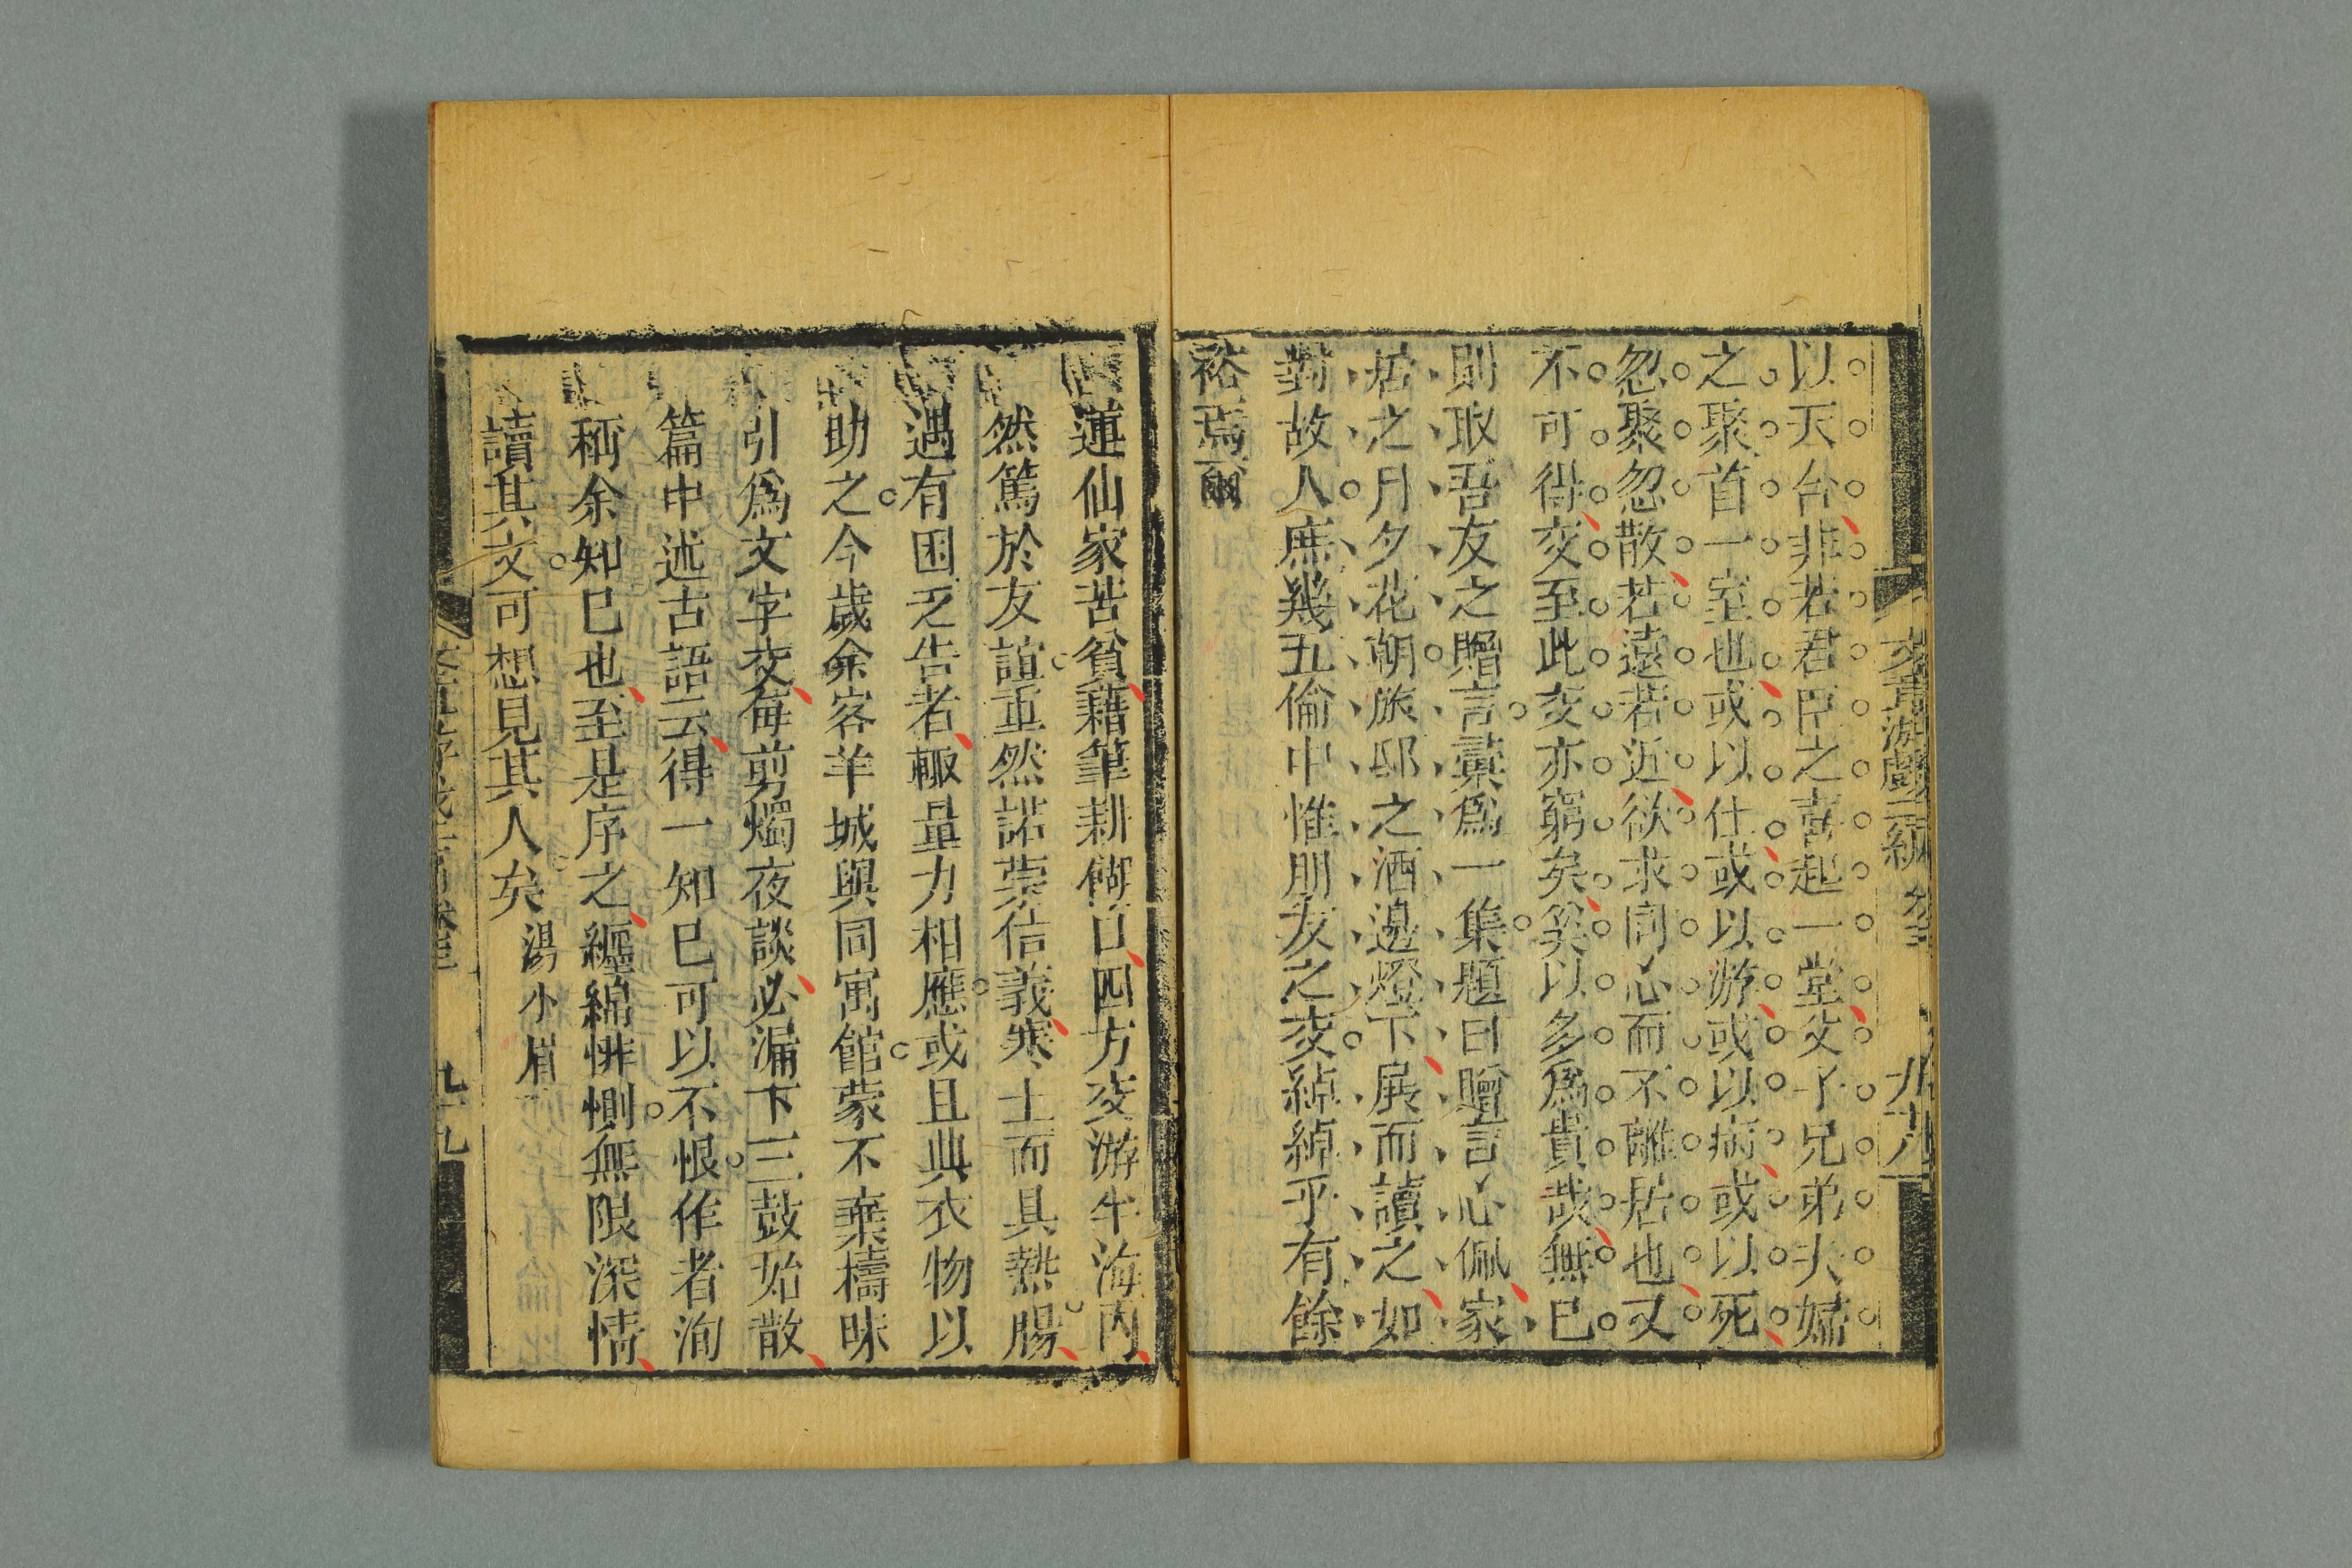 以天台非若君臣之喜起一堂父子兄弟夫婦
之聚首一室也或以仕或以游或以病或以死
忽聚忽散若遠若近欲求同心而不離居也又
不可得交至此交亦窮矣奚以多為貴哉無已
則取吾友之贈言彙為一集題曰贈言心佩家
居之月夕花朝旅邸之酒邊燈下展而讀之如
對故人庶幾五倫中惟朋友之交綽綽乎有餘
裕焉爾
蓮仙家苦貧藉筆耕餬口四方交游半海内
然篤於友誼重然諾崇信義寒士而具熱腸
遇有困乏告者輒量力相應或且典衣物以
助之今歲余客羊城與同寓館蒙不棄檮昧
引為文字交每剪燭夜談必漏下三鼓始散
篇中述古語云得一知已可以不恨作者洵
稱余知已也至是序之纏綿悱惻無限深情
讀其文可想見其人矣 湯小眉